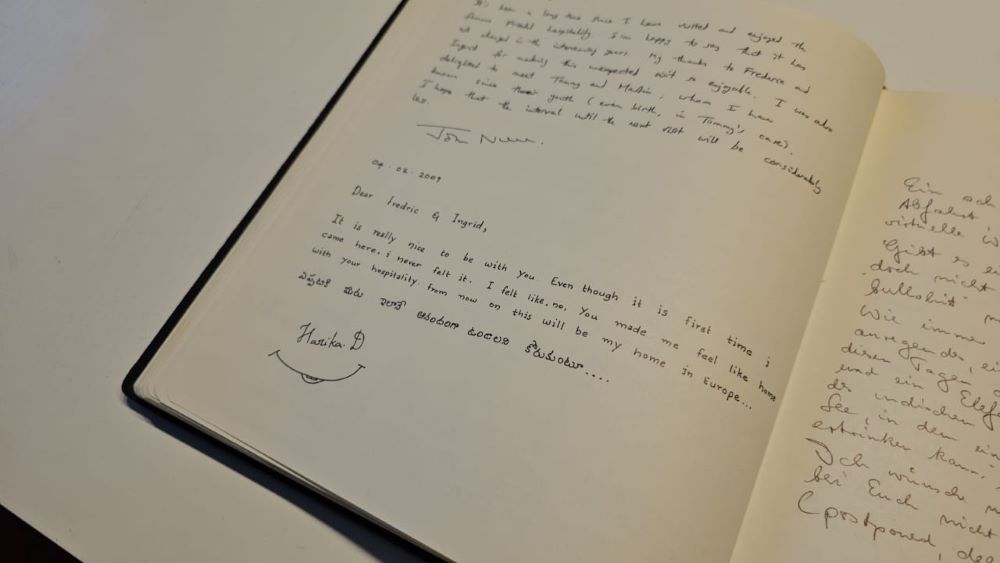 It's been a long time since I have visited and enjoyed the
famous Prahl hospitality. I'm happy to say that it has
not changed in the intervening years. My thanks to Frederic and
Ingrid for making this unexpected visit so enjoyable. I was also
delighted to meet Timmy and Martin, whom I have
known since their youth (even birth, in Timmy's case).
I hope that the interval until the next visit will be considerably
less.
John
04.02.2009
Dear Fredric & Ingrid,
It is really nice to be with you Even though it is first time i
came here. i never felt it. I felt like. no, You made me feel like home
with your hospitality. from now on this will be my home in Europe...
ఎప్పటికీ మీరు ఇలానే ఆనందంగా ఉండాలని కోరుకుంటూ....
Harika D
Ein sch
Abfahrt
virtuelle
Gibt es ei
doch nicht
bullshit
Wie immer
anregender, ei
diesen Tagen
und ein Elef
der indischen
See, in dem ein
ertrinken kann.
Ich wünsche
bei Euch nicht
(postponed, dea